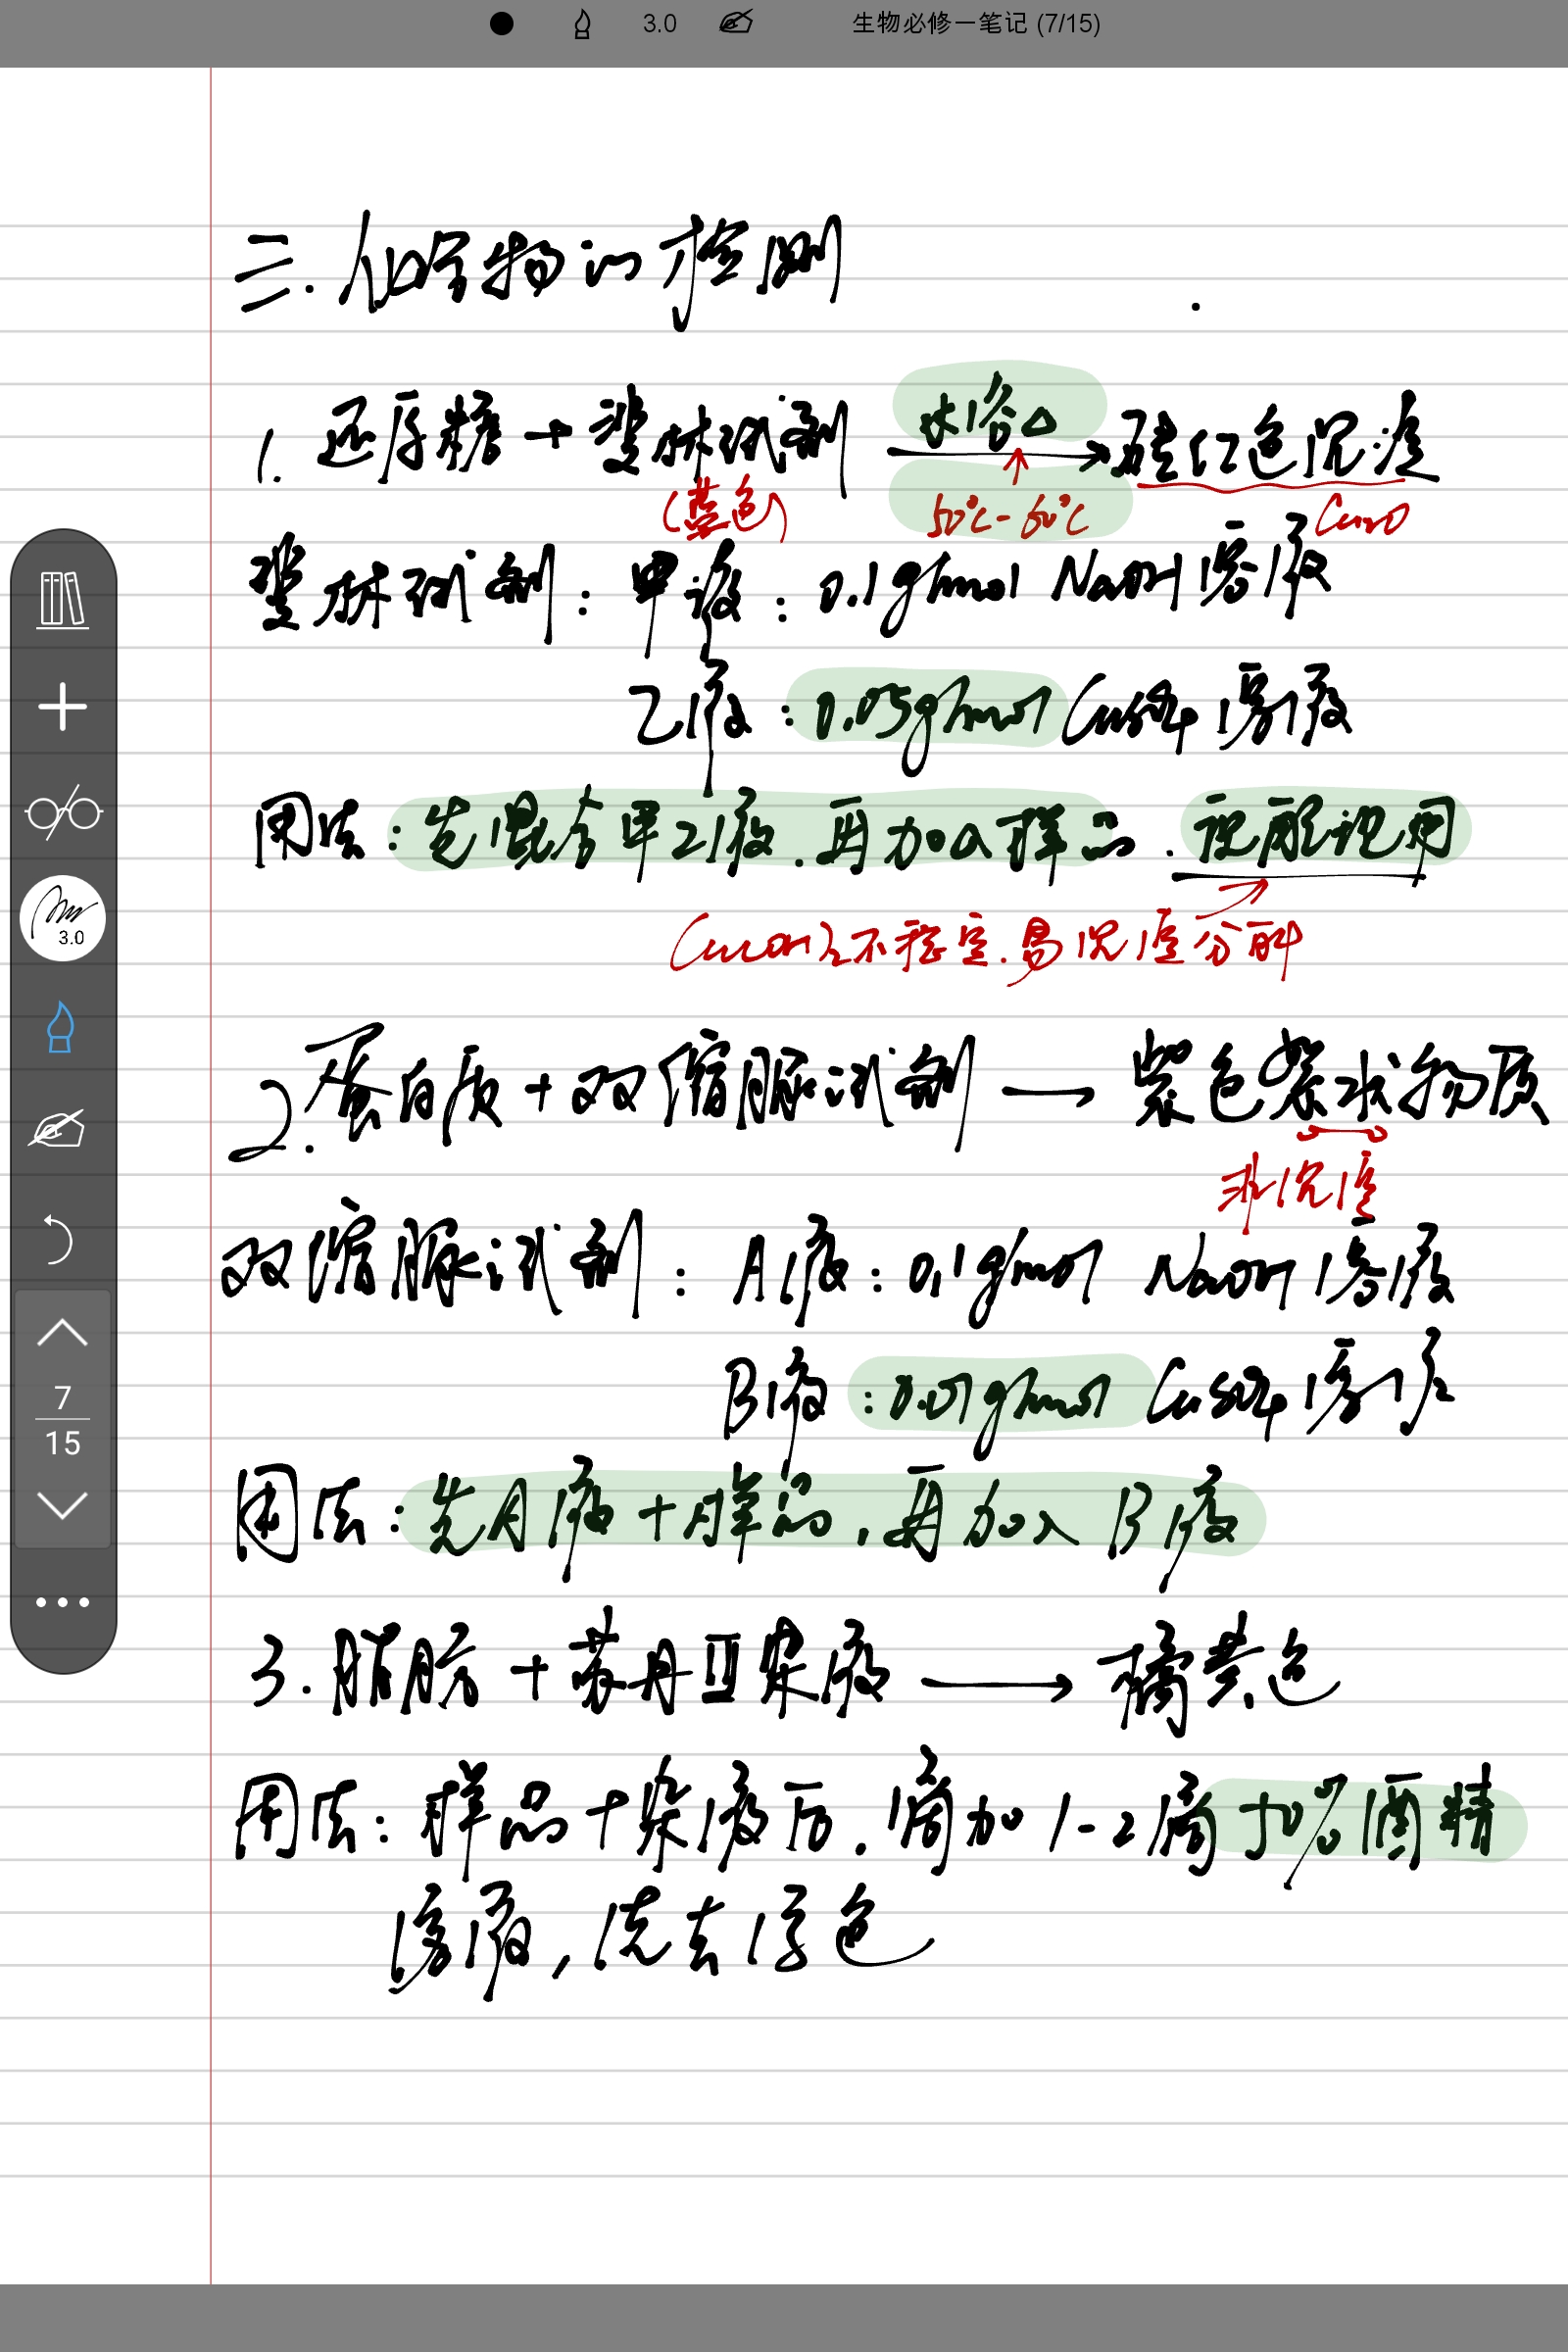 3.0 生物必修一笔记 (7/15)
三.化合物的检测
1. 还原糖+斐林试剂 水浴△ → 砖红色沉淀
(蓝色) 50℃-60℃ Cu2O
斐林试剂:甲液:0.1g/mol NaOH溶液
乙液:0.05g/mol CuSO4溶液
用法:先混合甲乙液.再加入样品.现配现用
Cu(OH)2不稳定.易沉淀分解
2.蛋白质+双缩脲试剂 — 紫色絮状物质
非沉淀
双缩脲试剂:A液:0.1g/mol NaOH溶液
B液:0.01g/mol CuSO4溶液
用法:先A液+样品,再加入B液
3.脂肪+苏丹Ⅲ染液 → 橘黄色
用法:样品+染液后.滴加1-2滴50%酒精
溶液,洗去浮色
3.0
7
15